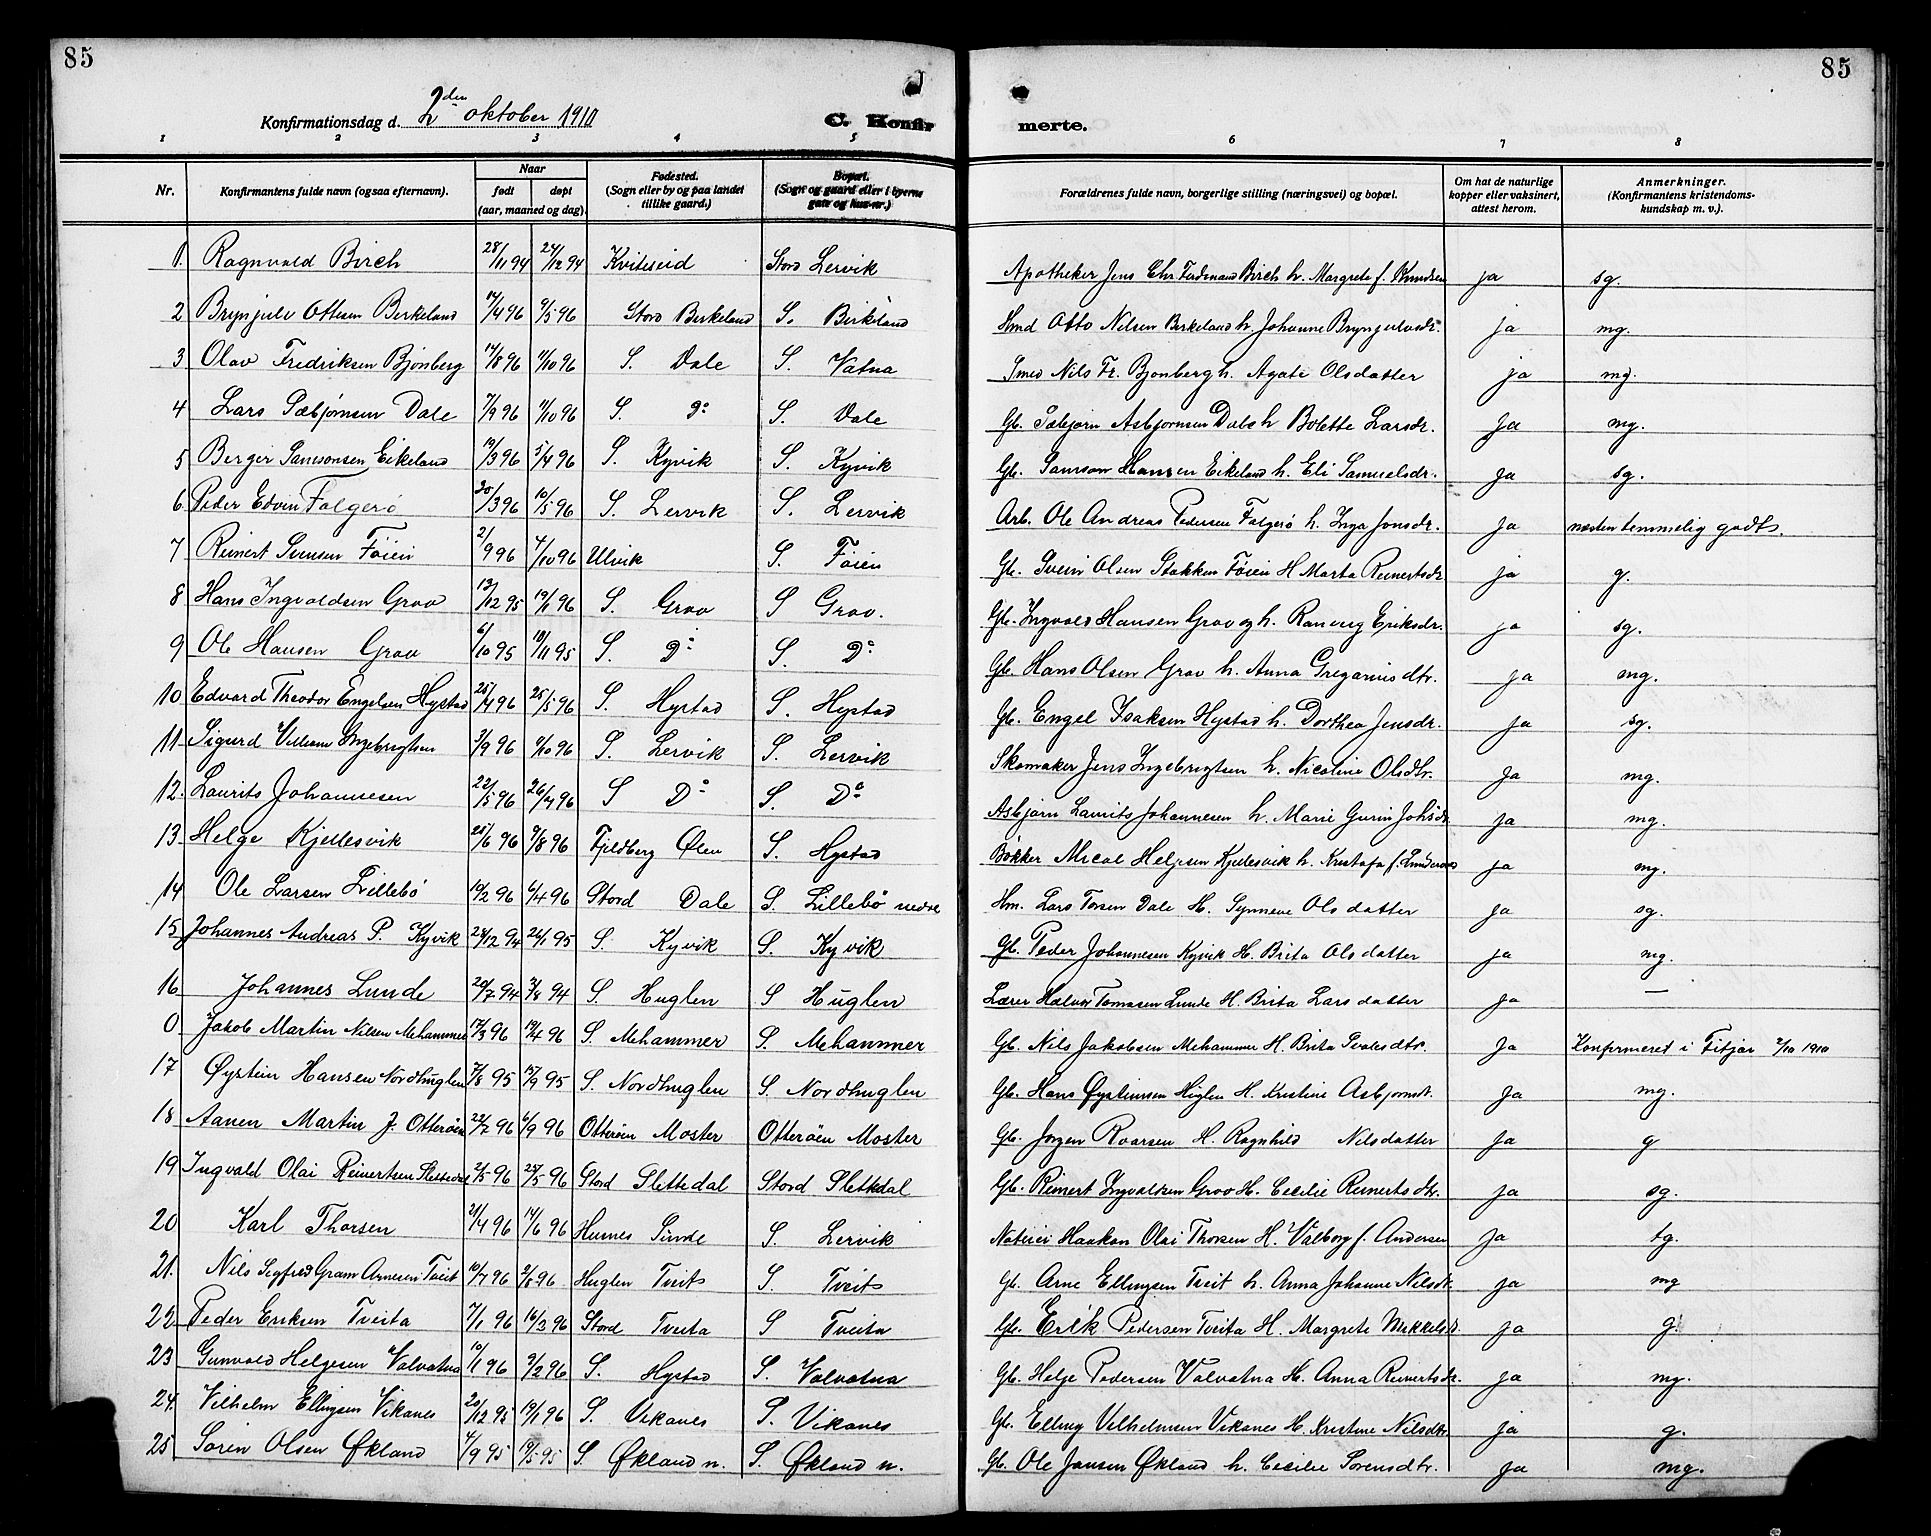 85
85
Konfirmationsdag d. 2den oktober 1910
C. Konfir merte.
1 2 3 4 5 6 7 8
Nr. Konfirmantens fulde navn (ogsaa efternavn). Naar født døpt (aar, maaned og dag). Fødested. (Sogn eller by og paa landet tillike gaard.) Bopæl. (Sogn og gaard eller i byerne gate og hus-nr.) Forældrenes fulde navn, borgerlige stilling (næringsvei) og bopæl. Om hat de naturlige kopper eller vaksinert, attest herom. Anmerkninger. (Konfirmantens kristendoms-kundskap m. v.).
1. Ragnvald Birch 28/11 94 24/12 94 Kviteseid Stord Lervik Apotheker Jens Chr. Ferdinand Birch h. Margrete f. Knudsen ja sg.
2 Brynjulv Ottesen Berkeland 17/4 96 9/5 96 Stord Berkeland S. Birkeland Hmd Otto Nilsen Birkeland h. Johanne Brynjulvsdr. ja mg.
3 Olav Fredriksen Bjönberg 14/8 96 11/10 96 S. Dale S. Vatna Smed Nils Fr. Bjonberg h. Agate Olsdatter ja mg.
4 Lars Sæbjørnsen Dale 7/9 96 11/10 96 S. Do S. Dale Gb. Sæbjørn Asbjørnsen Dale h Bolette Larsdr. ja mg.
5 Berger Samsonsen Eikeland 13/3 96 5/4 96 S. Kyvik S. Kyvik Gb. Samson Hansen Eikeland h. Eli Samuelsdr. ja sg.
6 Peder Edvin Falgerö 20/3 96 10/5 96 S. Lervik S. Lervik Arb. Ole Andreas Pedersen Falgerö h. Inga Jonsdr. ja næsten temmelig godt.
7 Reinert Sveinsen Föien 2/9 96 4/10 96 Ulvik S. Föien Gb. Svein Olsen Stokken Föien H Marta Reinertsdr ja g.
8 Hans Ingvaldsen Grov 13/12 95 19/1 96 S. Grov S Grov. Gb. Ingvald Hansen Grov og h. Ranveig Eriksdr. ja sg.
9 Ole Hansen Grov 6/10 95 10/11 95 S. Do S. Do Gb. Hans Olsen Grov h. Anna Gregarius dtr. ja mg.
10 Edvard Theodor Engelsen Hystad 25/4 96 25/5 96 S. Hystad S. Hystad Gb. Engel Isaksen Hystad h. Dorthea Jensdr. ja sg.
11 Sigurd Villiam Ingebrigtsen 3/9 96 11/10 96 S. Lervik S. Lervik Skomaker Jens Ingebrigtsen h. Nicoline Olsdtr. ja mg.
12. Laurits Johannesen 22/5 96 26/7 96 S Do S. Do Asbjørn Laurits Johannesen h. Marie Gurin Johsdr ja mg.
13 Helge Kjellesvik 25/6 96 9/8 96 Fjeldberg Ølen S. Hystad Bökker Mical Helgesen Kjellesvik h. Kristofa f. ja mg.
14 Ole Larsen Lillebö 10/2 96 6/4 96 Stord Dale S. Lillebö nedre Hm. Lars Torsen Dale H. Synneve Olsdatter ja sg.
15 Johannes Andreas P. Kyvik 24/12 94 26/1 95 S. Kyvik S. Kyvik Gb. Peder Johannesen Kyvik H. Brita Olsdatter ja mg.
16 Johannes Lunde 20/7 94 7/8 94 S. Huglen S Huglen Lærer Halvor Tomasen Lunde H. Brita Larsdatter ja —
0 Jakob Martin Nilsen Mehammer 17/3 96 19/4 96 S. Mehammer S. Mehammer Gb. Nils Jakobsen Mehammer H. Brita dtr. ja Konfirmeret i Fitjar 2/10 1910
17 Øystein Hansen Nordhuglen 7/8 95 15/9 95 S. Nordhuglen S. Nordhuglen Gb. Hans Øysteinsen Huglen H. Kristine Asbjørnsdr. ja mg.
18 Aanen Martin J. Otteröen 22/7 96 6/9 96 Otteröen Moster Otteröen Moster Gb. Jørgen Roarsen H. Ragnhild Nilsdatter ja g
19 Ingvald Olai Reinertsen Slettedal 2/5 96 25/5 96 Stord Slettedal Stord Slettedal Gb. Reinert Ingvaldsen Grov H. Cecilie Reinertsdtr. ja sg.
20 Karl Thorsen 21/4 96 14/6 96 Husnes Sunde S. Lervik Noteier Haakon Olai Thorsen H. Valborg f. Andersen ja tg.
21. Nils Segfred Gram Arnesen Tveit 10/4 96 2/6 96 Huglen Tveit S Tveit Gb. Arne Ellingsen Tveit h. Anna Johanne Nilsdr. ja mg
22 Peder Eriksen Tveita 7/1 96 16/3 96 Stord Tveita S Tveita Gb. Erik Pedersen Tveita H. Margrete Mikkelsd. ja g.
23 Gunvald Helgesen Valvatna 10/1 96 9/2 96 S. Hystad S. Valvatna Gb. Helge Pedersen Valvatna H. Anna Reinertsdr. ja mg.
24. Vilhelm Ellingsen Vikanes 20/12 95 19/1 96 S. Vikanes S. Vikanes Gb. Elling Vilhelmsen Vikanes H. Kristine Nilsdtr ja g.
25 Sören Olsen Økland 4/9 95 19/5 95 S. Økland n. S. Økland n. Gb. Ole Jansen Økland h. Cecilie Sorensdtr. ja mg.